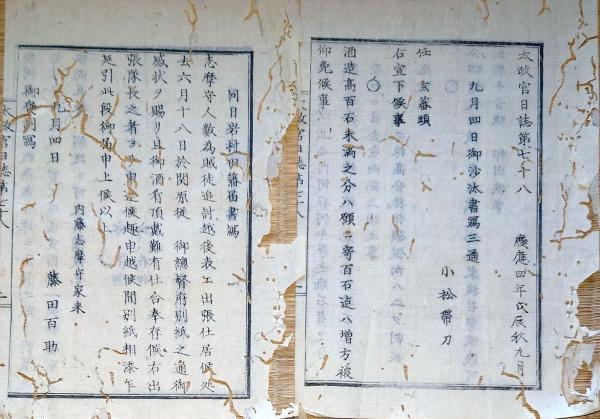 太政官日誌第七十八
慶應四年戊辰秋九月
九月四日御沙汰書寫三通
小松帶刀
任 玄蕃頭
右宣下候事
〇
酒造高百石未滿之分ハ願ニ寄百石迄ハ増方被
仰免候事
同日岩村田藩届書寫
志摩守人數為賊徒追討越後表エ出張仕居候処
去六月十八日於関原従 御總督府別紙之通御
感状ヲ賜リ且御酒有頂戴難有仕合奉存候右出
張隊長之者ヨリ申越候間別紙相添ヘ
此段御届申上候以上
内藤志摩守家来
九月四日 藤田百助
太政官日誌第七十八